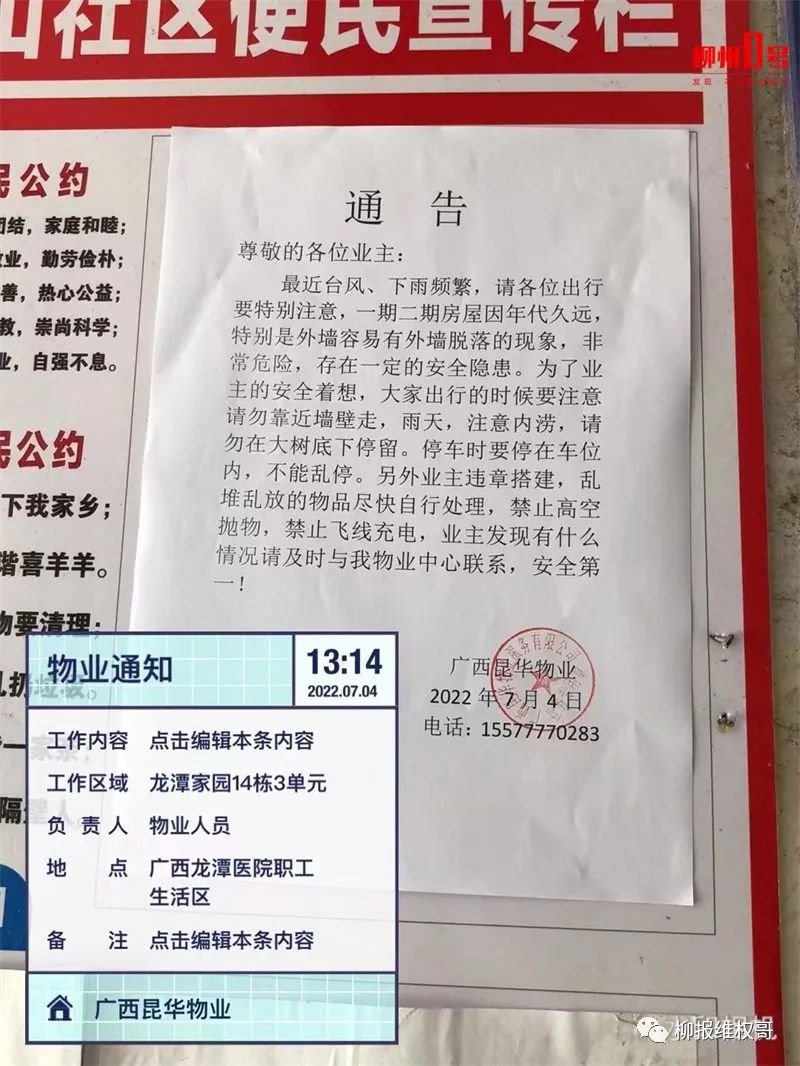 山社区便民宣传栏
柳州1号
民公约
团结，家庭和睦；
业，勤劳俭朴；
善，热心公益；
教，崇尚科学；
业，自强不息。
民公约
下我家乡；
谐喜羊羊。
物要清理；
通 告
尊敬的各位业主：
最近台风、下雨频繁，请各位出行
要特别注意，一期二期房屋因年代久远，
特别是外墙容易有外墙脱落的现象，非
常危险，存在一定的安全隐患。为了业
主的安全着想，大家出行的时候要注意
请勿靠近墙壁走，雨天，注意内涝，请
勿在大树底下停留。停车时要停在车位
内，不能乱停。另外业主违章搭建，乱
堆乱放的物品尽快自行处理，禁止高空
抛物，禁止飞线充电，业主发现有什么
情况请及时与我物业中心联系，安全第
一！
广西昆华物业
2022 年 7 月 4 日
电话：15577770283
物业通知
13:14
2022.07.04
工作内容 点击编辑本条内容
工作区域 龙潭家园14栋3单元
负责人 物业人员
地点 广西龙潭医院职工
生活区
备注 点击编辑本条内容
广西昆华物业
柳报维权哥